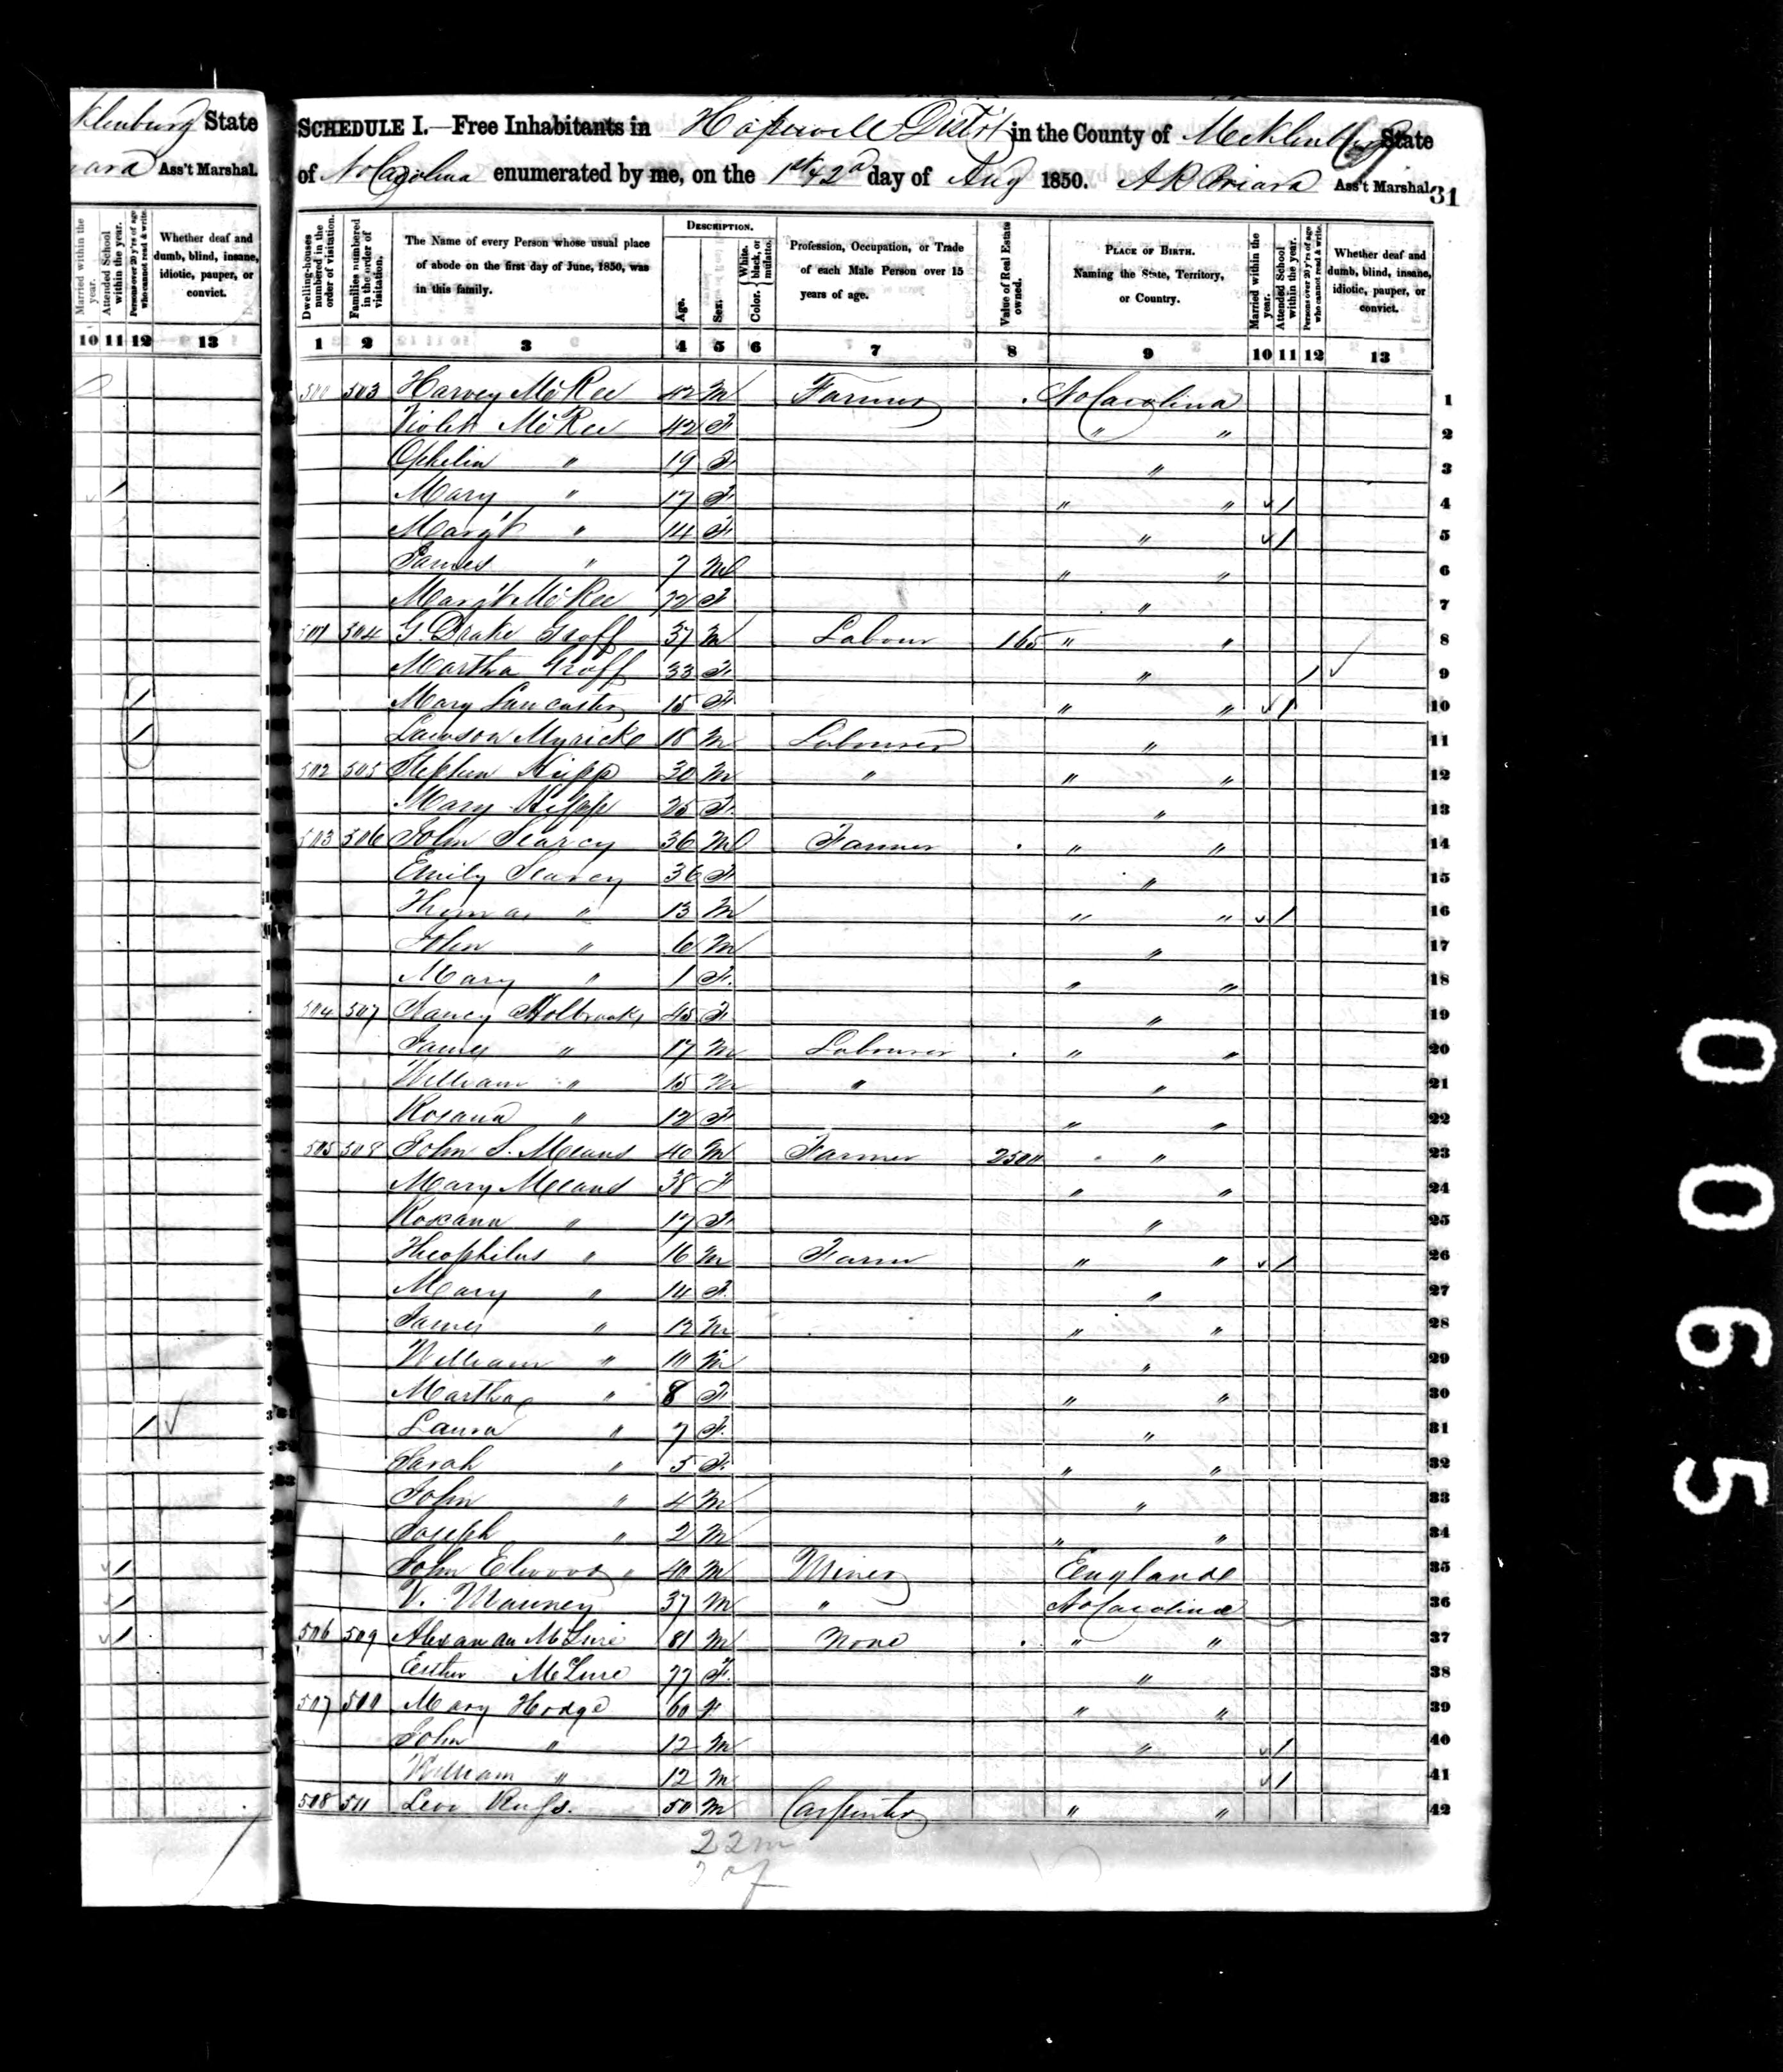 klenburg State
Ass't Marshal.
Married within the year.
Attended School within the year.
Persons over 20 y'rs of age who cannot read & write.
Whether deaf and dumb, blind, insane, idiotic, pauper, or convict.
10 11 12 13
SCHEDULE I.—Free Inhabitants in Hopewell District in the County of Mecklenburg State
of No Carolina enumerated by me, on the 1st & 2d day of Aug 1850. Ass't Marshal.
31
Dwelling-houses numbered in the order of visitation.
Families numbered in the order of visitation.
The Name of every Person whose usual place of abode on the first day of June, 1850, was in this family.
DESCRIPTION.
Age.
Sex.
Color. { White, black, or mulatto.
Profession, Occupation, or Trade of each Male Person over 15 years of age.
Value of Real Estate owned.
PLACE OF BIRTH. Naming the State, Territory, or Country.
Married within the year.
Attended School within the year.
Persons over 20 y'rs of age who cannot read & write.
Whether deaf and dumb, blind, insane, idiotic, pauper, or convict.
1 2 3 4 5 6 7 8 9 10 11 12 13
500 503 Harvey McRee 42 M Farmer No Carolina 1
Violet McRee 42 F " " 2
Ophelia " 19 F " 3
Mary " 17 F " " / 4
Marg't " 14 F " / 5
James " 7 M " " 6
Marg't McRee 72 F " 7
501 504 G. Drake Groff 37 M Labour 165 " " 8
Martha Groff 33 F " / 9
Mary Lancaster 15 F " " / 10
Lawson Myrick 18 M Labourer " 11
502 505 Stephen Nipp 30 M " " " 12
Mary Nipp 25 F " 13
503 506 John Searcy 36 M Farmer " " 14
Emily Searcy 36 F " 15
Thomas " 13 M " " / 16
John " 6 M " 17
Mary " 1 F " " 18
504 507 Nancy Holbrooks 45 F " 19
James " 17 M Labourer " " 20
William " 15 M " " 21
Rosana " 12 F " " 22
505 508 John S. Means 40 M Farmer 2500 " " 23
Mary Means 38 F " " 24
Roxann " 17 F " 25
Theophilus " 16 M Farm " " / 26
Mary " 14 F " 27
James " 12 M " " 28
William " 10 M " 29
Martha " 8 F " " 30
Laura " 7 F " 31
Sarah " 5 F " " 32
John " 4 M " 33
Joseph " 2 M " " 34
John Elwood " 40 M Miner England 35
V. Mauney 37 M " No Carolina 36
506 509 Alexander McLure 81 M None " " 37
Esther McLure 77 F " 38
507 500 Mary Hodge 60 F " " 39
John " 12 M " / 40
William " 12 M / 41
508 511 Levi 50 M Carpenter " " 42
22m
00965